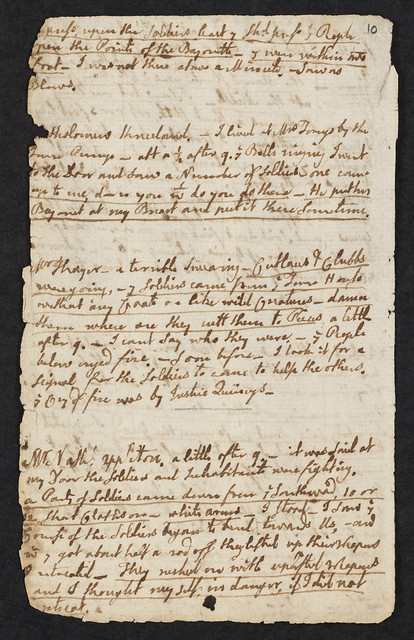 10
press upon the Soldiers least yy shd press ye People
upon the Points of the Bayonetts — yy were within two
foot — I was not there above a Minute, — I saw no
Blows.
Bartholomew Kneeland. — I lived at Mrs Torreys by the
Town Pump — abt a ½ after 9. ye Bells ringing I went
to the Door and saw a Number of Soldiers, one came
up to me, dam you wt do you do there — He put his
Bayonet at my Breast and put it there Sometime.
Mr Thayer — a terrible Swearing — Cutlasses & Clubbs
were going, — 7 Soldiers came from ye Town House
without any Coats on like wild Creatures — damn
them where are they cutt them to Pieces a little
after 9. — I cant say who they were. — ye People
below cryed fire — Soon before — I took it for a
signal for the Soldiers to come to help the others.
ye Cry of fire was by Justice Quincys —
Mr Nathl Appleton. a little after 9 — it was said at
my Door the Soldiers and Inhabitants were fighting.
a Party of Soldiers came down from ye Southward, 10 or
12, Short Cloaths on — white arms — I stood — I saw ye
Course of the Soldiers began to bend towards Us, — and
wn yy got about half a rod off they lifted up their Weapons
I retreated — They rushed on with uplifted Weapons
and I thought my self in danger, if I did not
retreat.